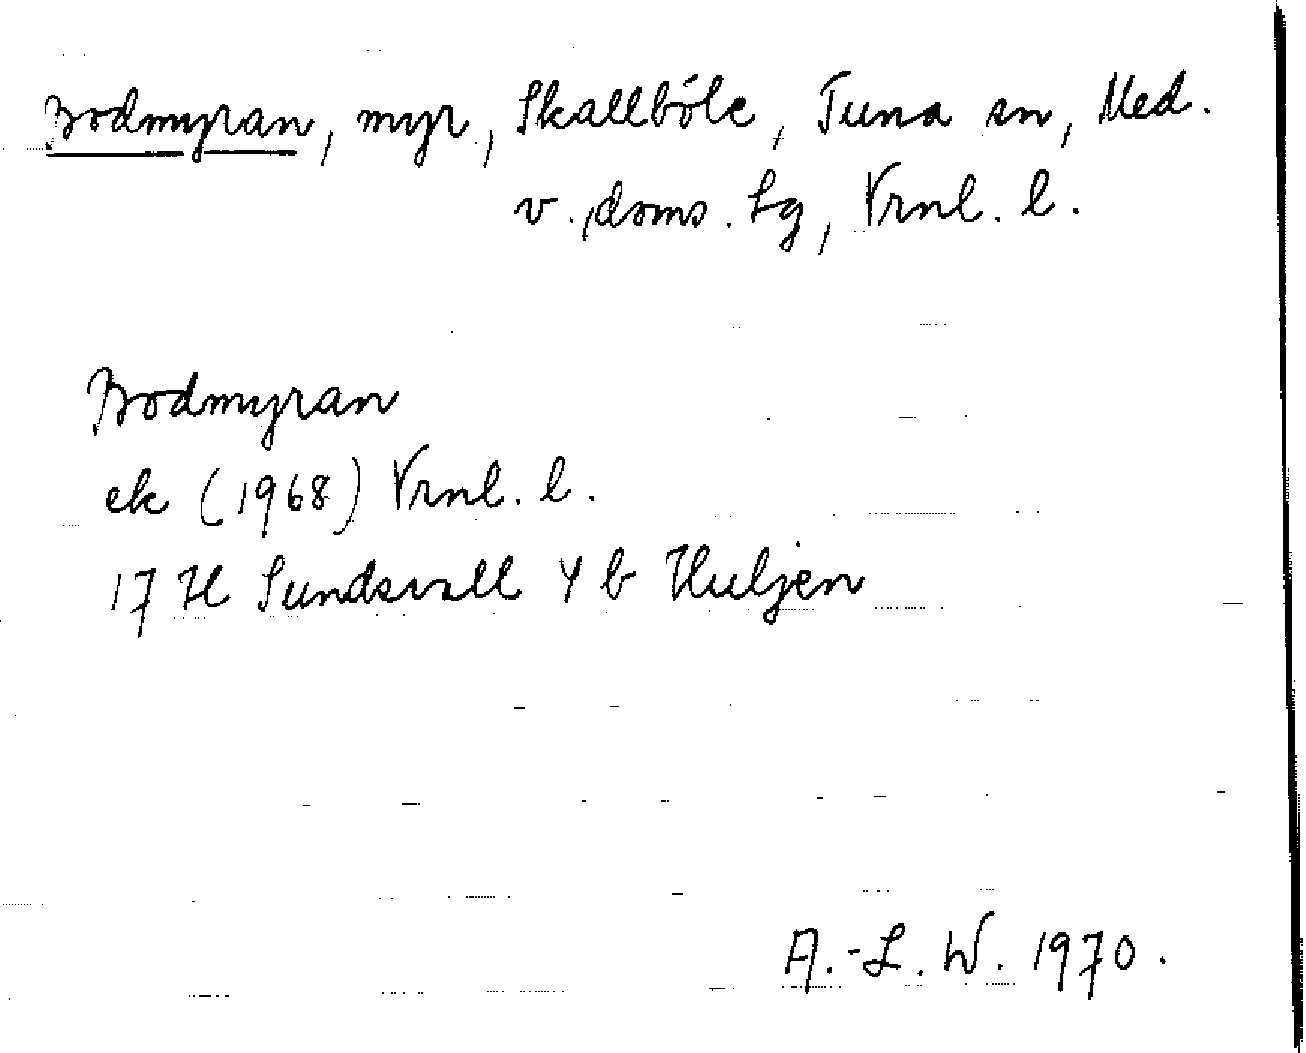 Bodmyran, myr, Skallböle, Tuna sn, Med.
v. doms. Lg, Vrnl. l.
Bodmyran
ek (1968) Vrnl. l.
17 H Sundsvall 4 b Huljen
A.-L. W. 1970.